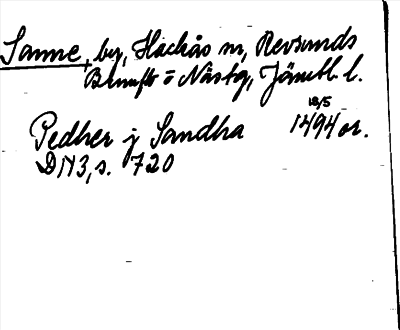 Sanne, by, Hackås sn, Revsunds
Brunfl. o Näs tg, Jämtl. l.
18/5
Pedher j Sandha 1494 or.
DN3, s. 720